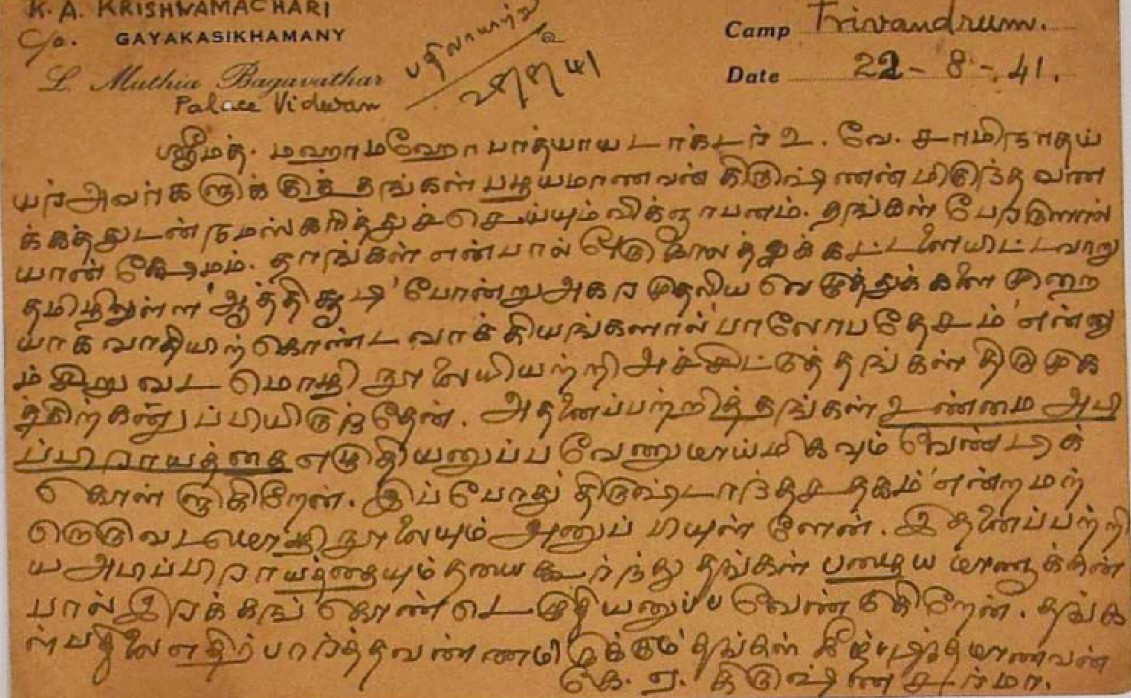 K. A. KRISHNAMACHARI
C/o. GAYAKASIKHAMANY
L. Muthia Bagavathar
Palace Vidwan
Camp Trivandrum.
Date 22-8-41.
ஸ்ரீமத். மஹாமஹோ பாத்யாய டாக்டர் உ. வே. சாமிநாதய்
யர் அவர்களுக்குத் தங்கள் பழயமாணவன் கிருஷ்ணன் மிகுந்த வண
க்கத்துடன் நமஸ்கரித்துச் செய்யும் விக்ஞாபனம். தங்கள் பேரருளால்
யான் க்ஷேமம். தாங்கள் என்பால் கட்டளையிட்டவாறு
தமிழிலுள்ள 'ஆத்திசூடி' போன்று அகரமுதலிய வெழுத்துக்களை முறை
யாக வாதியிற்கொண்ட வாக்கியங்களால் 'பாலோபதேசம்' என்னு
ம் சிறு வட மொழி நூலையியற்றி அச்சிட்டுத் தங்கள் திருமுக
த்திற்கனுப்பியிருந்தேன். அதனைப்பற்றித் தங்கள் உண்மை அபி
ப்பிராயத்தை எழுதியனுப்ப வேணுமாய் மிகவும் வேண்டிக்
கொள்ளுகிறேன். இப்போது திருஷ்டாந்த சதகம்' என்ற மற்
றொரு வடமொழி நூலையும் அனுப்பியுள்ளேன். இதனைப்பற்றி
ய அபிப்பிராயத்தையும் தயை கூர்ந்து தங்கள் பழைய மாணாக்கன்
பால் இரக்கங் கொண்டெழுதியனுப்ப வேண்டுகிறேன். தங்க
ள் பதிலை எதிர்பார்த்தவண்ணமிருக்கும் தங்கள் கீழ்ப்படிந்தமாணவன்
கே. ஏ. கிருஷ்ண சர்மா.